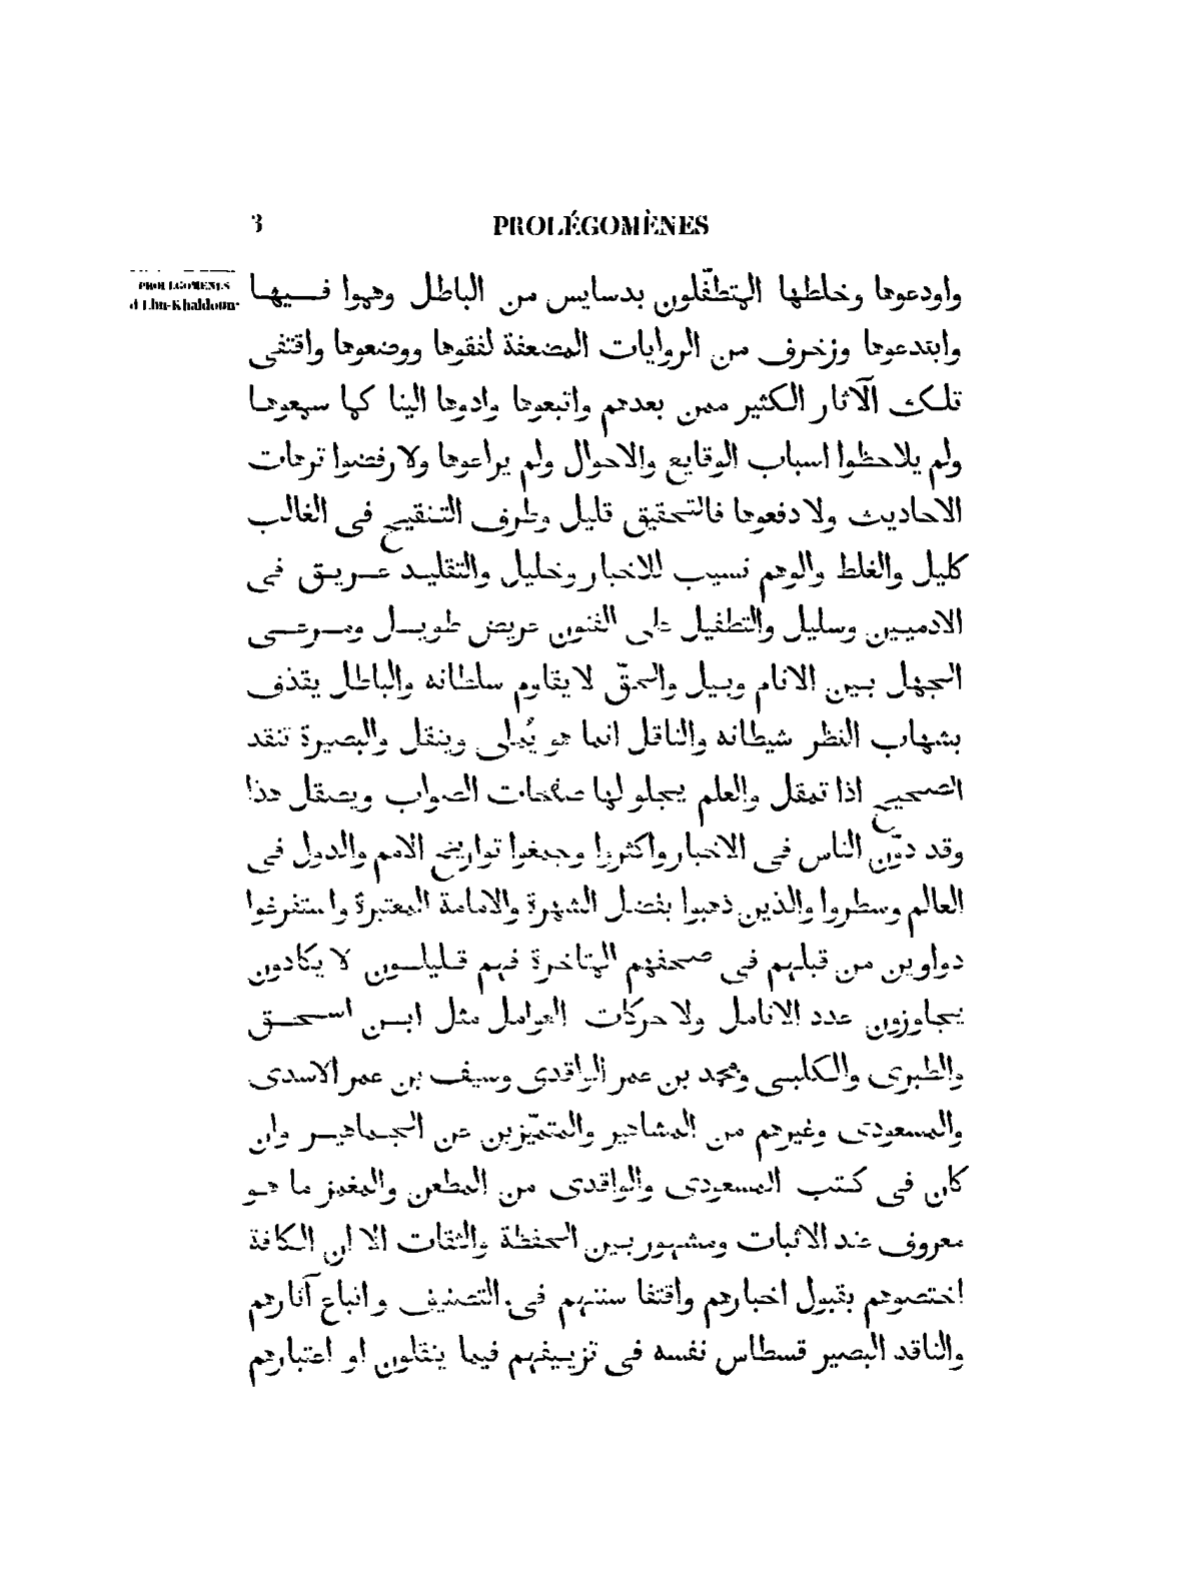 3
PROLÉGOMÈNES
PROLÉGOMÈNES
d'Ebn-Khaldoun.
واودعوها وخلطها المتطفّلون بدسايس من الباطل وهموا فيها
وابتدعوها وزخرف من الروايات المضعفة لفقوها ووضعوها واقتفى
تلك الآثار الكثير ممن بعدهم واتبعوها وادوها الينا كما سمعوها
ولم يلاحظوا اسباب الوقايع والاحوال ولم يراعوها ولا رفضوا ترهات
الاحاديث ولا دفعوها فالتحقيق قليل وطرف التنقيح فى الغالب
كليل والغلط والوهم نسيب للاخبار وخليل والتقليد عريق فى
الادميين وسليل والتطفيل على الفنون عريض طويل ومرعى
الجهل بين الانام وبيل والحقّ لا يقاوم سلطانه والباطل يقذف
بشهاب النظر شيطانه والناقل انما هو يُملى وينقل والبصيرة تنقد
الصحيح اذا تمقل والعلم يجلو لها صفحات الصواب ويصقل هذا
وقد دوّن الناس فى الاخبار واكثروا وجمعوا تواريخ الامم والدول فى
العالم وسطروا والذين ذهبوا بفضل الشهرة والامامة المعتبرة واستفرغوا
دواوين من قبلهم فى صحفهم المتاخرة فهم قليلون لا يكادون
يجاوزون عدد الانامل ولا حركات العوامل مثل ابن اسحق
والطبرى والكلبى ومحمد بن عمر الواقدى وسيف بن عمر الاسدى
والمسعودى وغيرهم من المشاهير والمتميّزين عن الجماهير وان
كان فى كتب المسعودى والواقدى من المطعن والمغمز ما هو
معروف عند الاثبات ومشهور بين الحفظة والثقات الا ان الكافة
اختصوهم بقبول اخبارهم واقتفا سننهم فى التصنيف واتباع آثارهم
والناقد البصير قسطاس نفسه فى تزييفهم فيما ينقلون او اعتبارهم